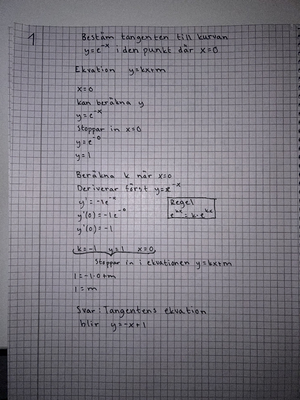 1
Bestäm tangenten till kurvan
y=e^-x i den punkt där x=0
Ekvation y=kx+m
x=0
kan beräkna y
y=e^-x
Stoppar in x=0
y=e^-0
y=1
Beräkna k när x=0
Deriverar först y=e^-x
y'=-1e^-x
Regel
e^kx=k·e^kx
y'(0)=-1e^-0
y'(0)=-1
k=-1 y=1 x=0
Stoppar in i ekvationen y=kx+m
1=-1·0+m
1=m
Svar: Tangentens ekvation
blir y=-x+1